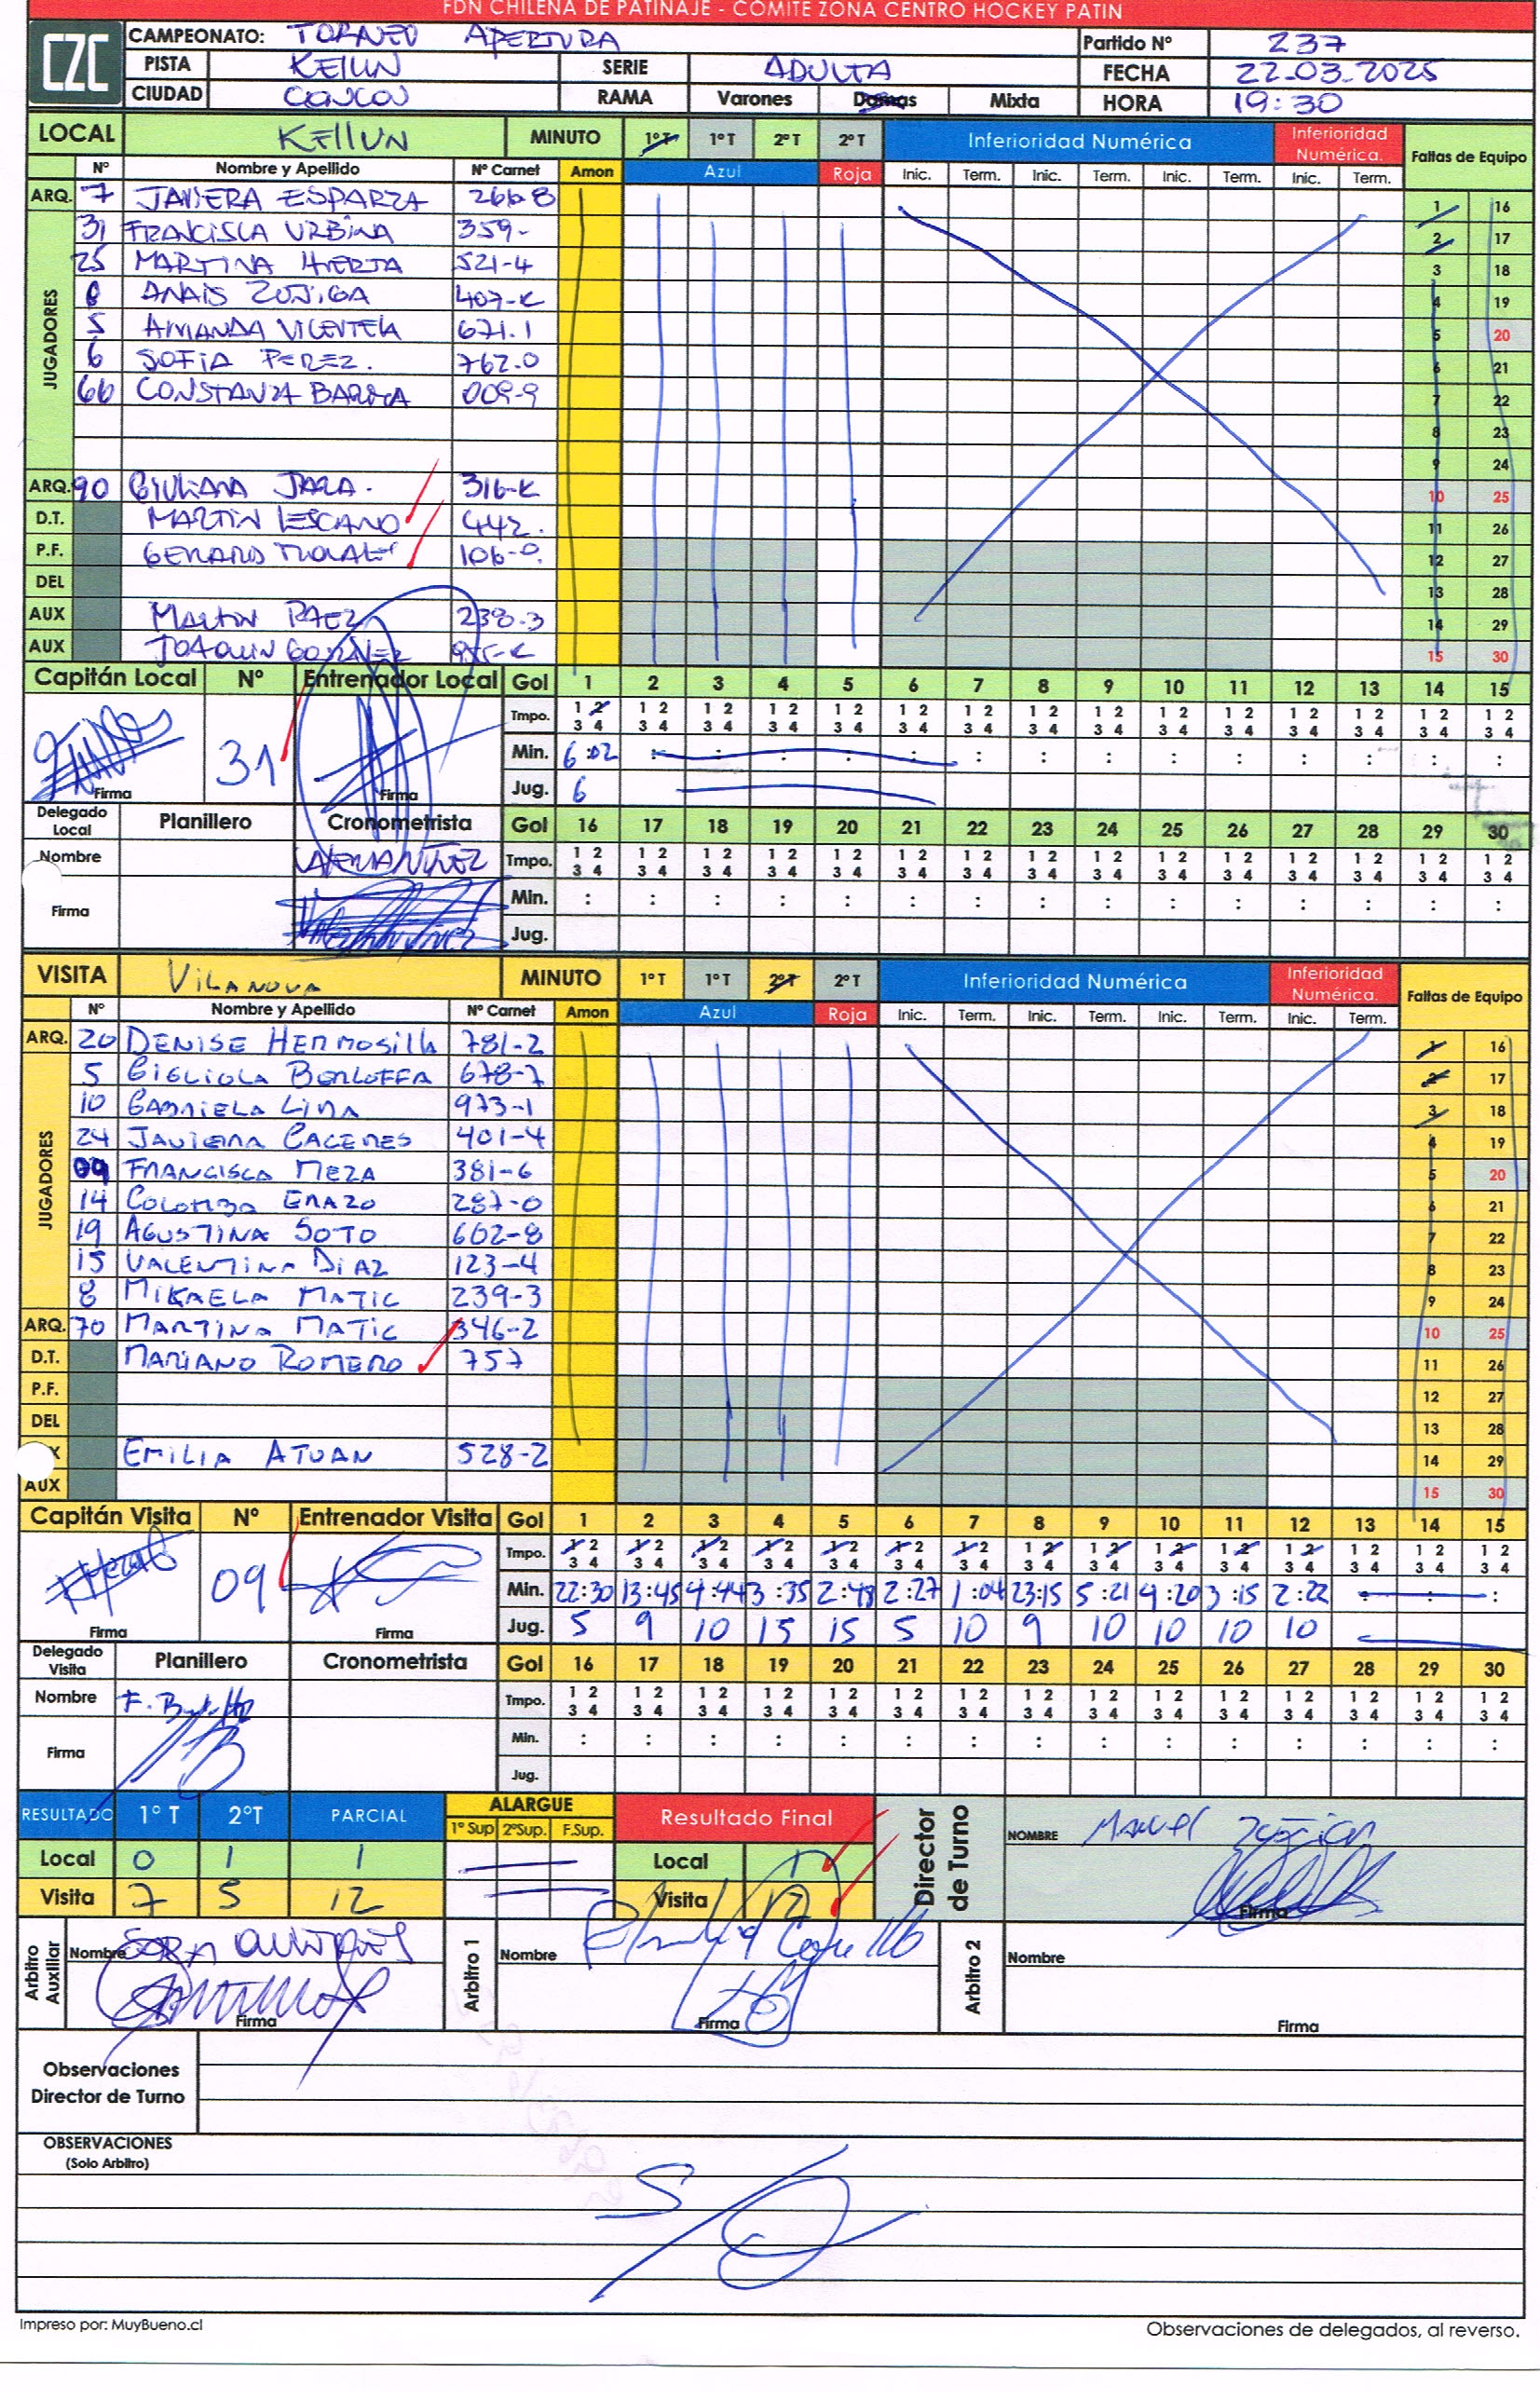 FDN CHILENA DE PATINAJE - COMITE ZONA CENTRO HOCKEY PATIN
CZC
CAMPEONATO: TORNEO APERTURA Partido Nº 237
PISTA KELLUN SERIE ADULTA FECHA 22-03-2025
CIUDAD CONCON RAMA Varones Damas Mixta HORA 19:30
LOCAL KELLUN MINUTO 1º T 1º T 2º T 2º T Inferioridad Numérica Inferioridad Numérica. Faltas de Equipo
Nº Nombre y Apellido Nº Carnet Amon Azul Roja Inic. Term. Inic. Term. Inic. Term. Inic. Term.
ARQ. 7 JAVIERA ESPARZA 266-8 1 16
JUGADORES
31 FRANCISCA URBINA 359- 2 17
25 MARTINA HUERTA 521-4 3 18
8 ANAIS ZUÑIGA 407-K 4 19
5 AMANDA VICENTELA 671.1 5 20
6 SOFIA PEREZ. 762.0 6 21
66 CONSTANZA BARRA 009-9 7 22
8 23
9 24
ARQ. 90 GIULIANA JARA. 316-K 10 25
D.T. MARTIN LESCANO 442. 11 26
P.F. 106-0. 12 27
DEL 13 28
AUX MARTIN PAEZ 238-3 14 29
AUX JOAQUIN GONZALEZ 15 30
Capitán Local Nº Entrenador Local Gol 1 2 3 4 5 6 7 8 9 10 11 12 13 14 15
Tmpo. 1 2 3 4 1 2 3 4 1 2 3 4 1 2 3 4 1 2 3 4 1 2 3 4 1 2 3 4 1 2 3 4 1 2 3 4 1 2 3 4 1 2 3 4 1 2 3 4 1 2 3 4 1 2 3 4 1 2 3 4
31 Min. 6:02 : : : : : : : : : : : : : :
Firma Firma Jug. 6
Delegado Local Planillero Cronometrista Gol 16 17 18 19 20 21 22 23 24 25 26 27 28 29 30
Nombre Tmpo. 1 2 3 4 1 2 3 4 1 2 3 4 1 2 3 4 1 2 3 4 1 2 3 4 1 2 3 4 1 2 3 4 1 2 3 4 1 2 3 4 1 2 3 4 1 2 3 4 1 2 3 4 1 2 3 4 1 2 3 4
Firma Min. : : : : : : : : : : : : : : :
Jug.
VISITA VILANOVA MINUTO 1º T 1º T 2º T 2º T Inferioridad Numérica Inferioridad Numérica. Faltas de Equipo
Nº Nombre y Apellido Nº Carnet Amon Azul Roja Inic. Term. Inic. Term. Inic. Term. Inic. Term.
ARQ. 20 DENISE HERMOSILLA 781-2 1 16
JUGADORES
5 GIGLIOLA BORLOFFA 678-7 2 17
10 GABRIELA LIRA 973-1 3 18
24 JAVIERA CACERES 401-4 4 19
09 FRANCISCA MEZA 381-6 5 20
14 COLOMBA ERAZO 287-0 6 21
19 AGUSTINA SOTO 602-8 7 22
15 VALENTINA DIAZ 123-4 8 23
8 MIKAELA MATIC 239-3 9 24
ARQ. 70 MARTINA MATIC 346-2 10 25
D.T. MARIANO ROMERO 757 11 26
P.F. 12 27
DEL 13 28
X EMILIA ATUAN 528-2 14 29
AUX 15 30
Capitán Visita Nº Entrenador Visita Gol 1 2 3 4 5 6 7 8 9 10 11 12 13 14 15
Tmpo. 1 2 3 4 1 2 3 4 1 2 3 4 1 2 3 4 1 2 3 4 1 2 3 4 1 2 3 4 1 2 3 4 1 2 3 4 1 2 3 4 1 2 3 4 1 2 3 4 1 2 3 4 1 2 3 4 1 2 3 4
09 Min. 22:30 13:45 4:44 3:35 2:48 2:27 1:04 23:15 5:21 4:20 3:15 2:22 : : :
Firma Firma Jug. 5 9 10 15 15 5 10 9 10 10 10 10
Delegado Visita Planillero Cronometrista Gol 16 17 18 19 20 21 22 23 24 25 26 27 28 29 30
Nombre Tmpo. 1 2 3 4 1 2 3 4 1 2 3 4 1 2 3 4 1 2 3 4 1 2 3 4 1 2 3 4 1 2 3 4 1 2 3 4 1 2 3 4 1 2 3 4 1 2 3 4 1 2 3 4 1 2 3 4 1 2 3 4
Firma Min. : : : : : : : : : : : : : : :
Jug.
RESULTADO 1º T 2ºT PARCIAL ALARGUE 1º Sup 2ºSup. F.Sup. Resultado Final Director de Turno NOMBRE MANUEL
Local 0 1 1 Local 1
Visita 7 5 12 Visita 12 Firma
Arbitro Auxiliar Nombre Arbitro 1 Nombre Arbitro 2 Nombre
Firma Firma Firma
Observaciones
Director de Turno
OBSERVACIONES
(Solo Arbitro)
S/O
Impreso por: MuyBueno.cl Observaciones de delegados, al reverso.